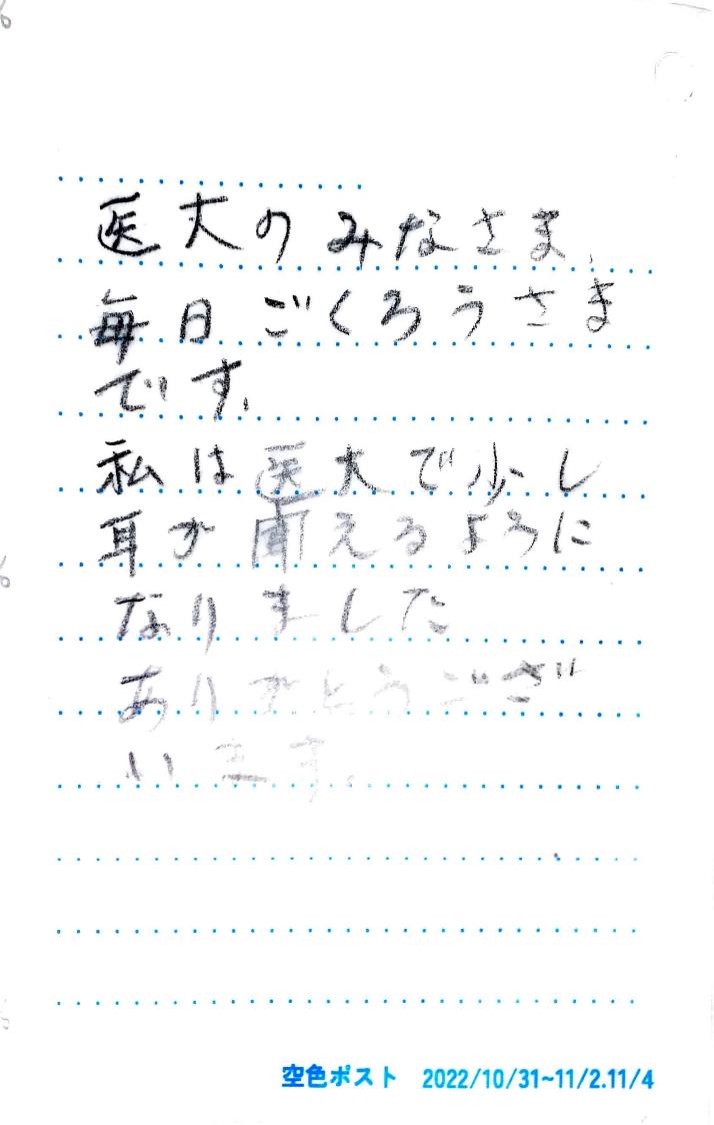 医大のみなさま、
毎日ごくろうさま
です。
私は医大で少し
耳が聞えるように
なりました
ありがとうござ
います。
空色ポスト 2022/10/31~11/2.11/4